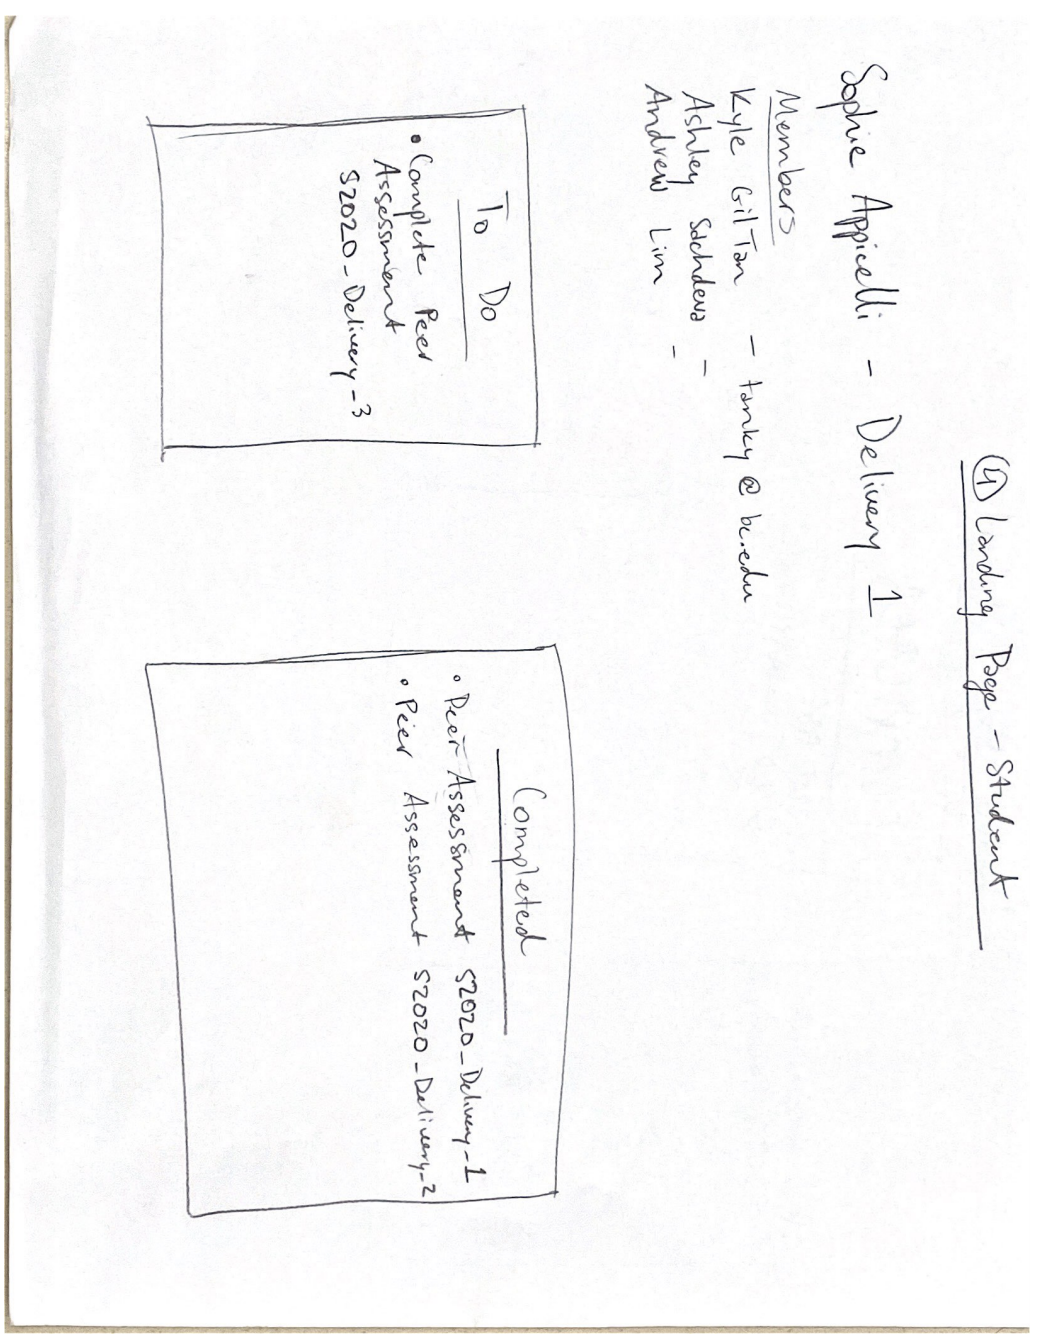 ④ Landing Page - Student
Sophie Appicelli - Delivery 1
Members
Kyle Gil Tan - tanky@bc.edu
Ashley Sachdeva -
Andrew Lim -
To Do
• Complete Peer
Assessment
S2020_Delivery_3
Completed
• Peer Assessment S2020_Delivery_1
• Peer Assessment S2020_Delivery_2